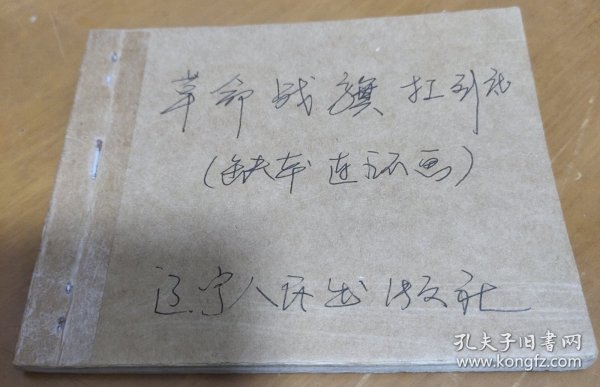 革命战旗扛到底
(缺本 连环画)
辽宁人民出版社
孔夫子旧书网
www.kongfz.com